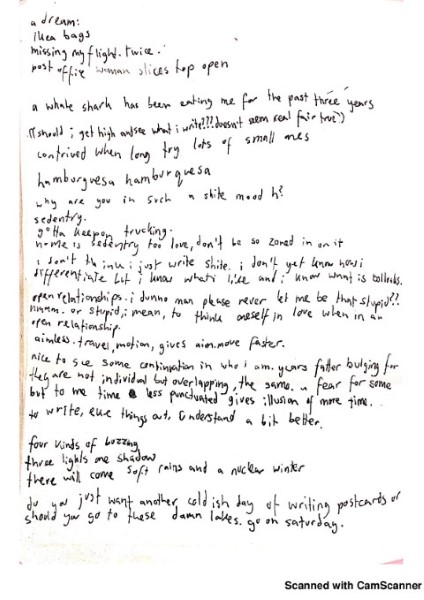 a dream:
ikea bags
missing my flight. twice.
post office woman slices top open
a whale shark has been eating me for the past three years
(should i get high and see what i write??? doesn't seem real fair tho?)
contrived when long try lots of small ones
hamburguesa hamburquesa
why are you in such a shite mood h?
sedentry.
gotta keep on trucking.
home is sedentry too love, don't be so zoned in on it
i don't think i just write shite. i don't yet know how i
differentiate but i know what i like and i know what is bollocks.
open relationships. i dunno man please never let me be that stupid??
hmmm. or stupid, i mean, to think oneself in love when in an
open relationship.
aimless. travel, motion, gives aim. move faster.
nice to see some continuation in who i am. years fatter bulging for
they are not individual but overlapping, the same. a fear for some
but to me time less punctuated gives illusion of more time.
to write, eke things out. understand a bit better.
four kinds of buzzing
three lights one shadow
there will come soft rains and a nuclear winter
do you just want another coldish day of writing postcards or
should you go to these damn lakes. go on saturday.
Scanned with CamScanner